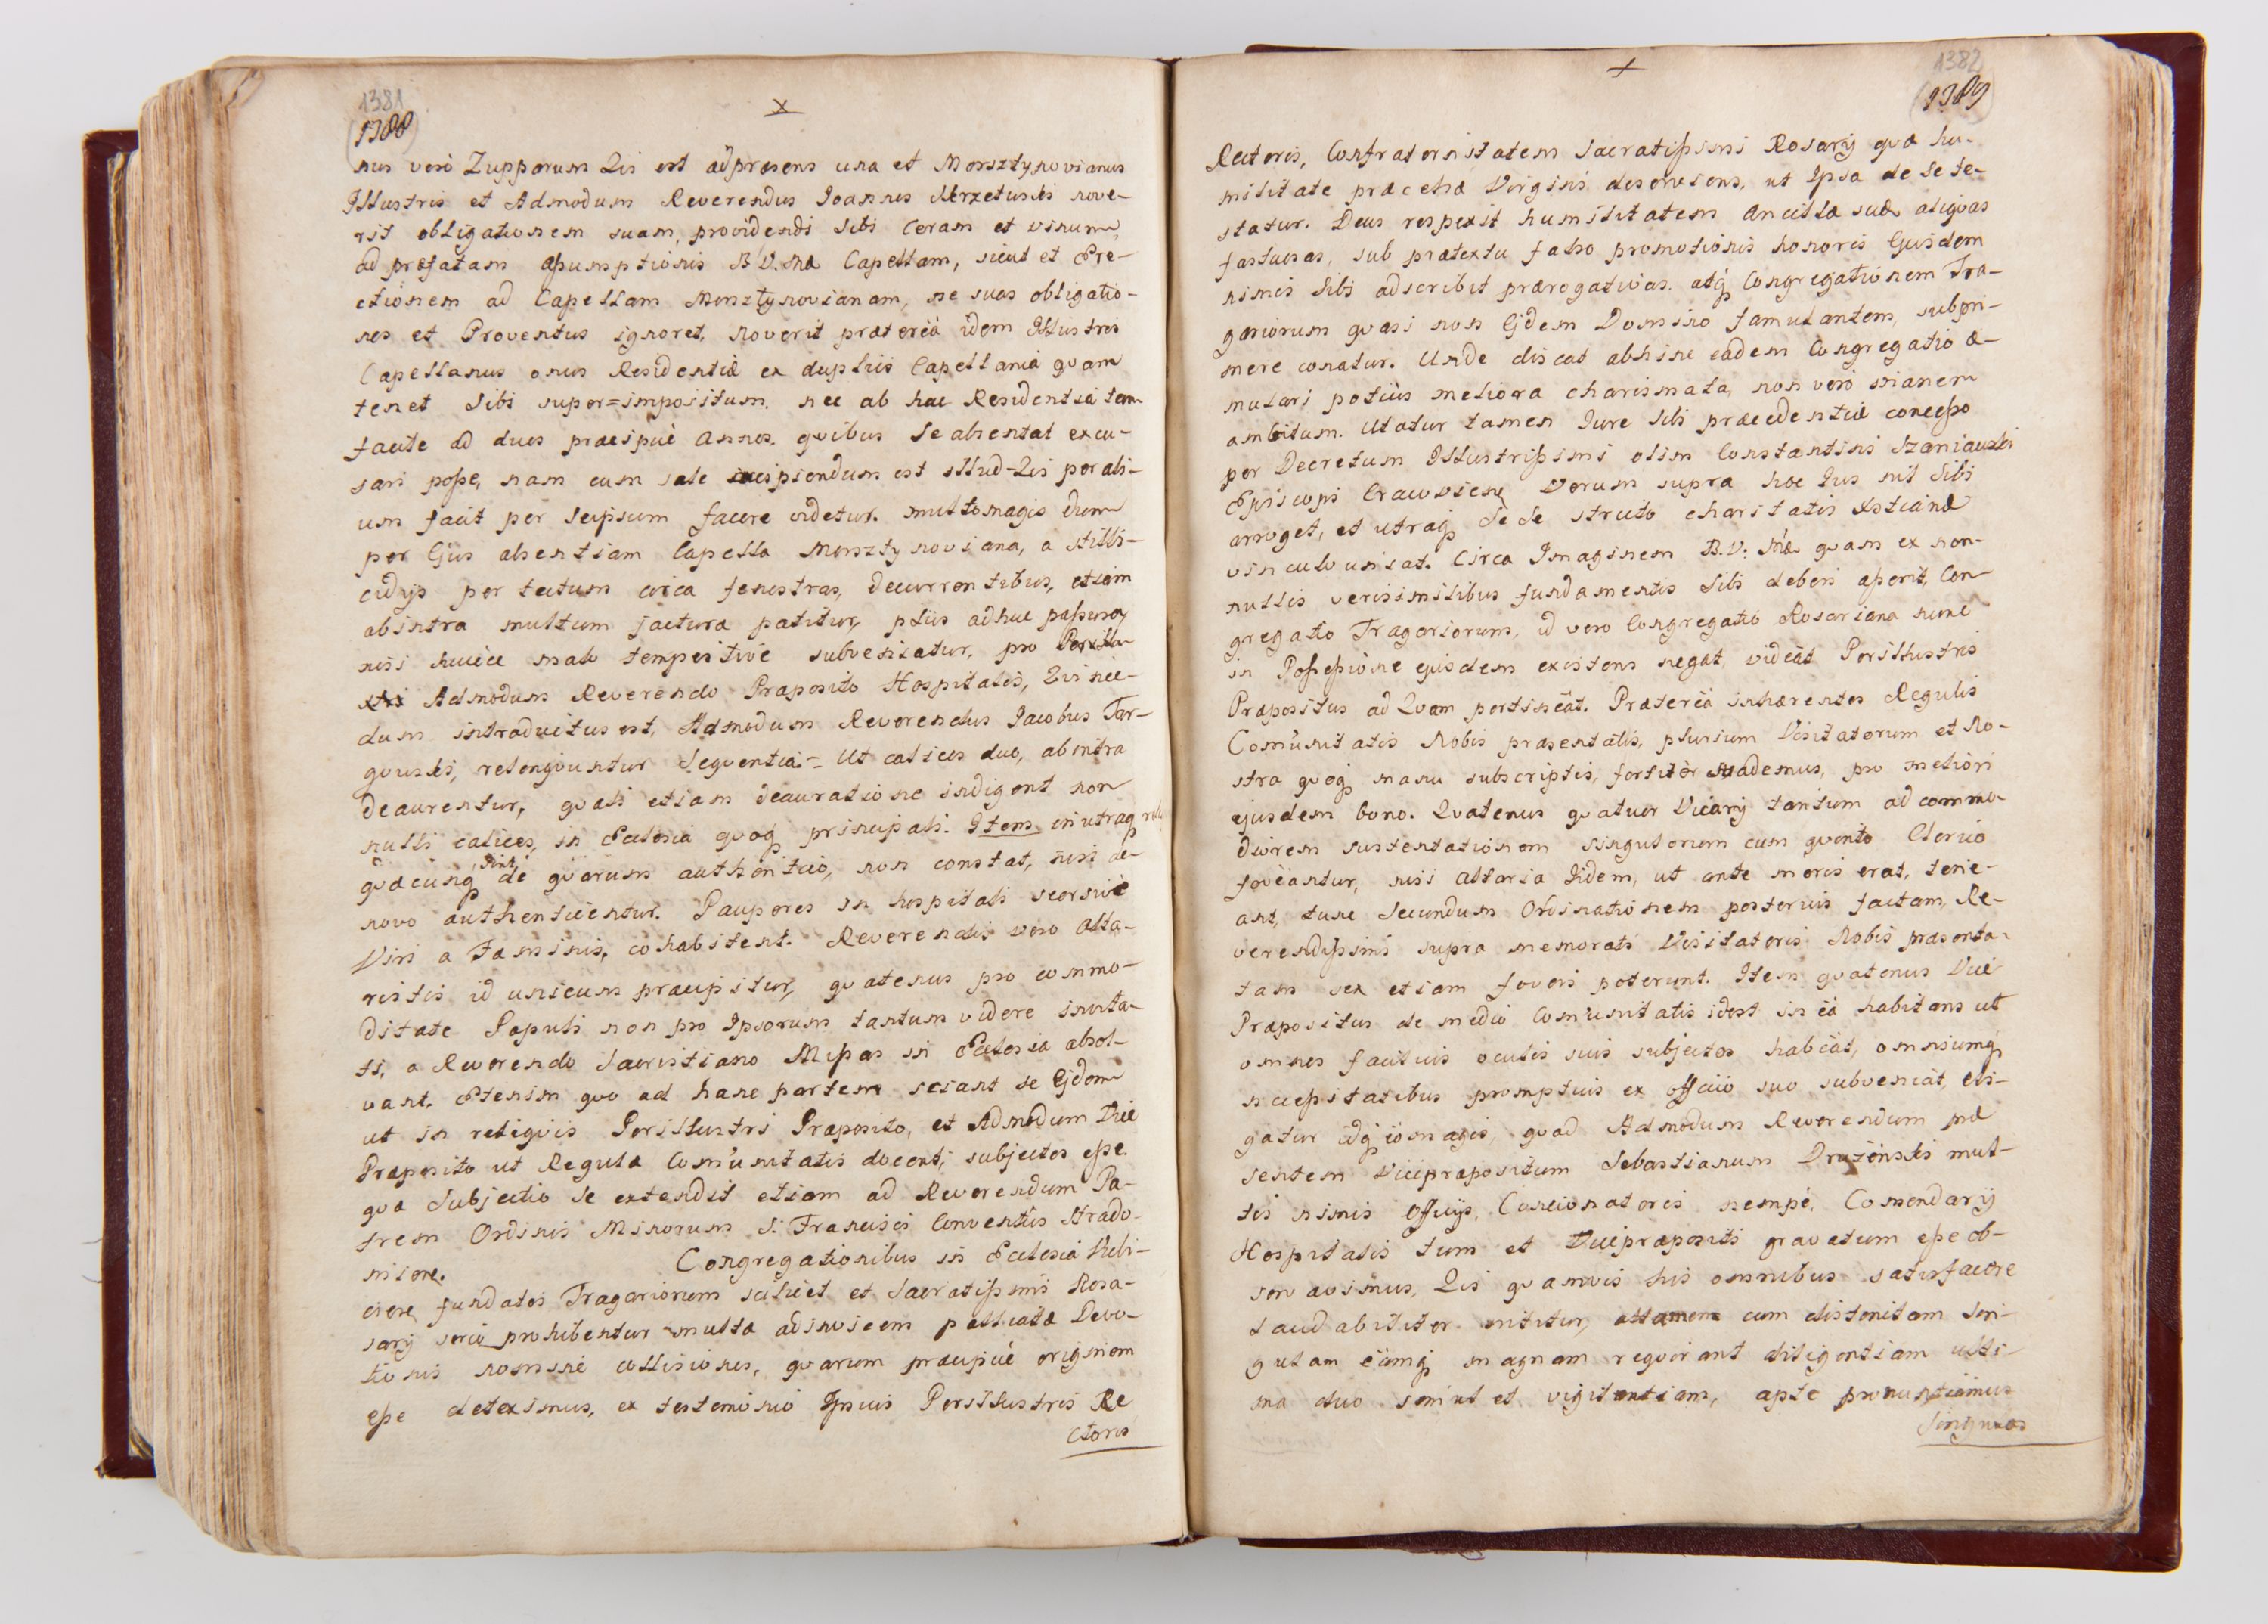 1381
(1388)
x
nus verò Zupporum Qui est adpræsens una et Morsztynovianus
Illustris et Admodum Reverendus Joannes Skrzetuski nove-
rit obligationem suam, providendi sibi Ceram et vinum,
ad præfatam Assumptionis B.V. Mæ Capellam, sicut et Ere-
ctionem ad Capellam Morsztynovianam, ne suas obligatio-
nes et Proventus ignoret. Noverit prætereà idem Illustris
Capellanus onus Residentiæ ex duplici Capellaniâ quam
tenet Sibi super=impositum. nec ab hac Residentiâ tam
facile ad duos præcipuè annos. quibus se absentat excu-
sari posse, nam cum sale accipiendum est illud Qui per ali-
um facit per seipsum facere videtur. multomagis dum
per Ejus absentiam Capella Morsztynoviana, a stilli-
cidijs per tectum circa fenestras, decurrentibus, etiam
abintra multum jactura patitur, plus adhuc passura
nisi huicce malo tempestivè subveniatur, pro Perillu-
stri Admodum Reverendo Præposito Hospitalis, Qui nec-
dum introductus est, Admodum Reverendus Jacobus Tar-
gowski, relinquuntur Sequentia:= Ut calices duo, abintra
deaurentur, quali etiam deauratione indigent non
nulli calices, in Ecclesia quoq principali. Item in utraq
quæcunq sint de quorum authentico, non constat, nisi de
novo authenticentur. Pauperes in hospitali seorsivè
Viri a Fæminis, cohabitent. Reverendis vero Alta-
ristis id unicum præcipitur, quatenus pro commo-
ditate Populi non pro Ipsorum tantum videre invita-
ti, a Reverendo Sacristiano Missas in Ecclesia absol-
vant. Etenim quo ad hanc partem sciant se Ejdem
ut in reliquis Perillustri Præposito, et Admodum Vice
Præposito ut Regulæ Com̃unitatis docent, subjectos esse.
quæ Subjectio se extendit etiam ad Reverendum Pa-
trem Ordinis Minorum S. Francisci Conventûs Strado-
mien.                Congregationibus in Ecclesia Vieli-
cien, fundatis Tragariorum scilicet et Sacratissimi Rosa-
sarij seriò prohibentur multæ adinvicem palliatæ Devo-
tionis nomine collisiones, quarum præcipuè originem
esse deteximus, ex testimonio Ipsius Perillustris Re
ctoris
1382
(1389)
x
Rectoris, Confraternitatem Sacratissimi Rosarij quæ hu-
militate præcelsæ Virginis deserviens, ut Ipsa de Se te-
statur. Deus respexit humilitatem Ancillæ suæ aliquas
fastuosas, sub prætextu falso promotionis honoris Ejusdem
nimis Sibi adscribit prærogativas. atq Congregationem Tra-
gariorum quasi non Ejdem Domino famulantem, subpri-
mere conatur. Unde discat abhinc eadem Congregatio æ-
mulari potiùs meliora charismata, non verò inanem
ambitum. Utatur tamen Jure Sibi præcedentiæ concesso
per Decretum Illustrissimi olim Constantini Szaniawski
Episcopi Cracovien, Verum supra hoc Jus nil Sibi
arroget, et utraq Se Se stricto charitatis Xstianæ
vinculo uniat. Circa Imaginem B.V. Mæ quam ex non-
nullis verisimilibus fundamentis Sibi deberi asserit, Con
gregatio Tragariorum, id vero Congregatio Rosariana nunc
in Possessione ejusdem existens negat, videat Perillustris
Præpositus ad Quam pertineat. Prætereà inhærentes Regulis
Com̃unitatis Nobis præsentatis, plurium Visitatorum et No-
stra quoq manu subscriptis, fortitèr suademus, pro meliori
ejusdem bono. Quatenus quatuor Vicarij tantum ad commo-
diorem sustentationem singulorum cum quinto Clerico
foveantur, nisi altaria Iidem, ut ante moris erat, tene-
ant, tunc Secundum Ordinationem posterius factam, Re-
verendissimi supra memorati Visitatoris Nobis præsenta-
tam sex etiam foveri poterunt. Item quatenus Vice
Præpositus de mediò Com̃unitatis idest in eâ habitans ut
omnes facilius oculis suis subjectos habeat, omniumq
necessitatibus promptius ex officio suo subveniat, eli-
gatur idq iò magis, quod Admodum Reverendum præ
sentem Vicepræpositum Sebastianum Druzénski mul-
tis nimis Officijs, Concionatoris nempè, Comendarij
Hospitalis tum et Vicepræpositi gravatum esse ob-
servavimus, Qui quamvis his omnibus satisfacere
laudabiliter nititur, attamen cum distinctam Sin-
gulam eamq magnam requirant diligentiam ulti-
ma duo simul et vigilantiam, apte pronuntiamus
Singulos